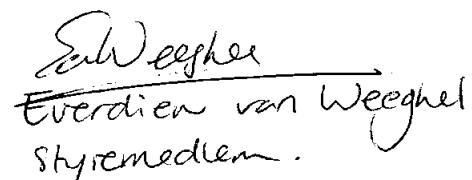 EvWeeghel
Everdien van Weeghel
styremedlem.